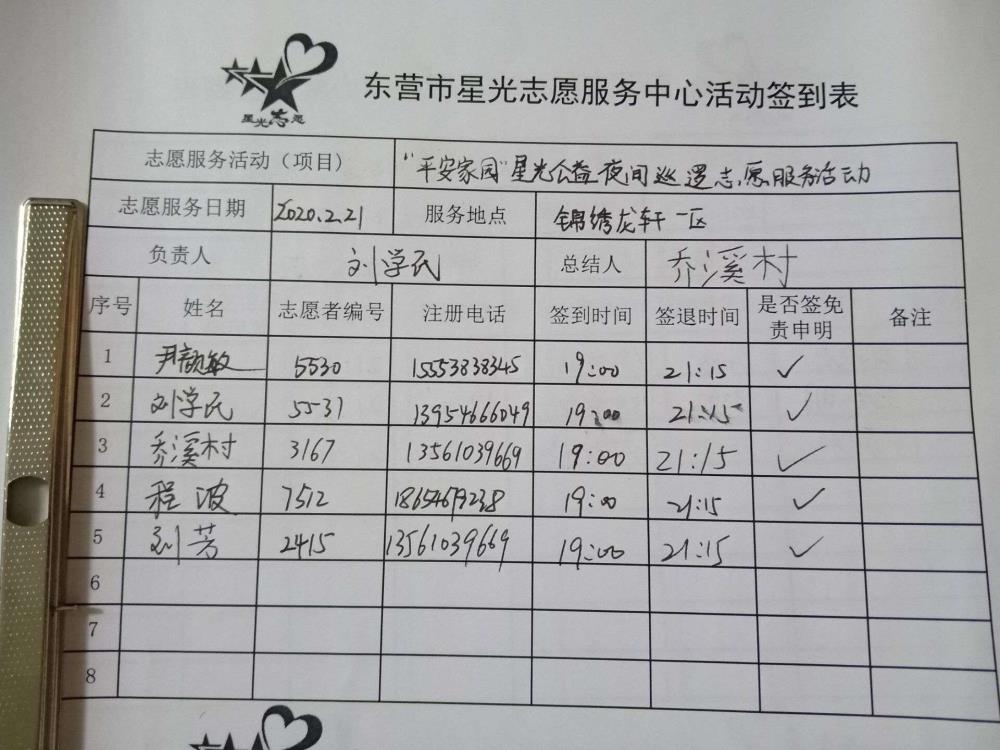 星光志愿
东营市星光志愿服务中心活动签到表
志愿服务活动（项目） "平安家园"星光公益夜间巡逻志愿服务活动
志愿服务日期 2020.2.21 服务地点 锦绣龙轩一区
负责人 刘学民 总结人 乔溪村
序号 姓名 志愿者编号 注册电话 签到时间 签退时间 是否签免责申明 备注
1 尹颜敏 5530 15553838345 19:00 21:15 ✓
2 刘学民 5531 13954666049 19:00 21:15 ✓
3 乔溪村 3167 13561039669 19:00 21:15 ✓
4 程波 7512 19:00 21:15 ✓
5 刘芳 2415 13561039669 19:00 21:15 ✓
6
7
8